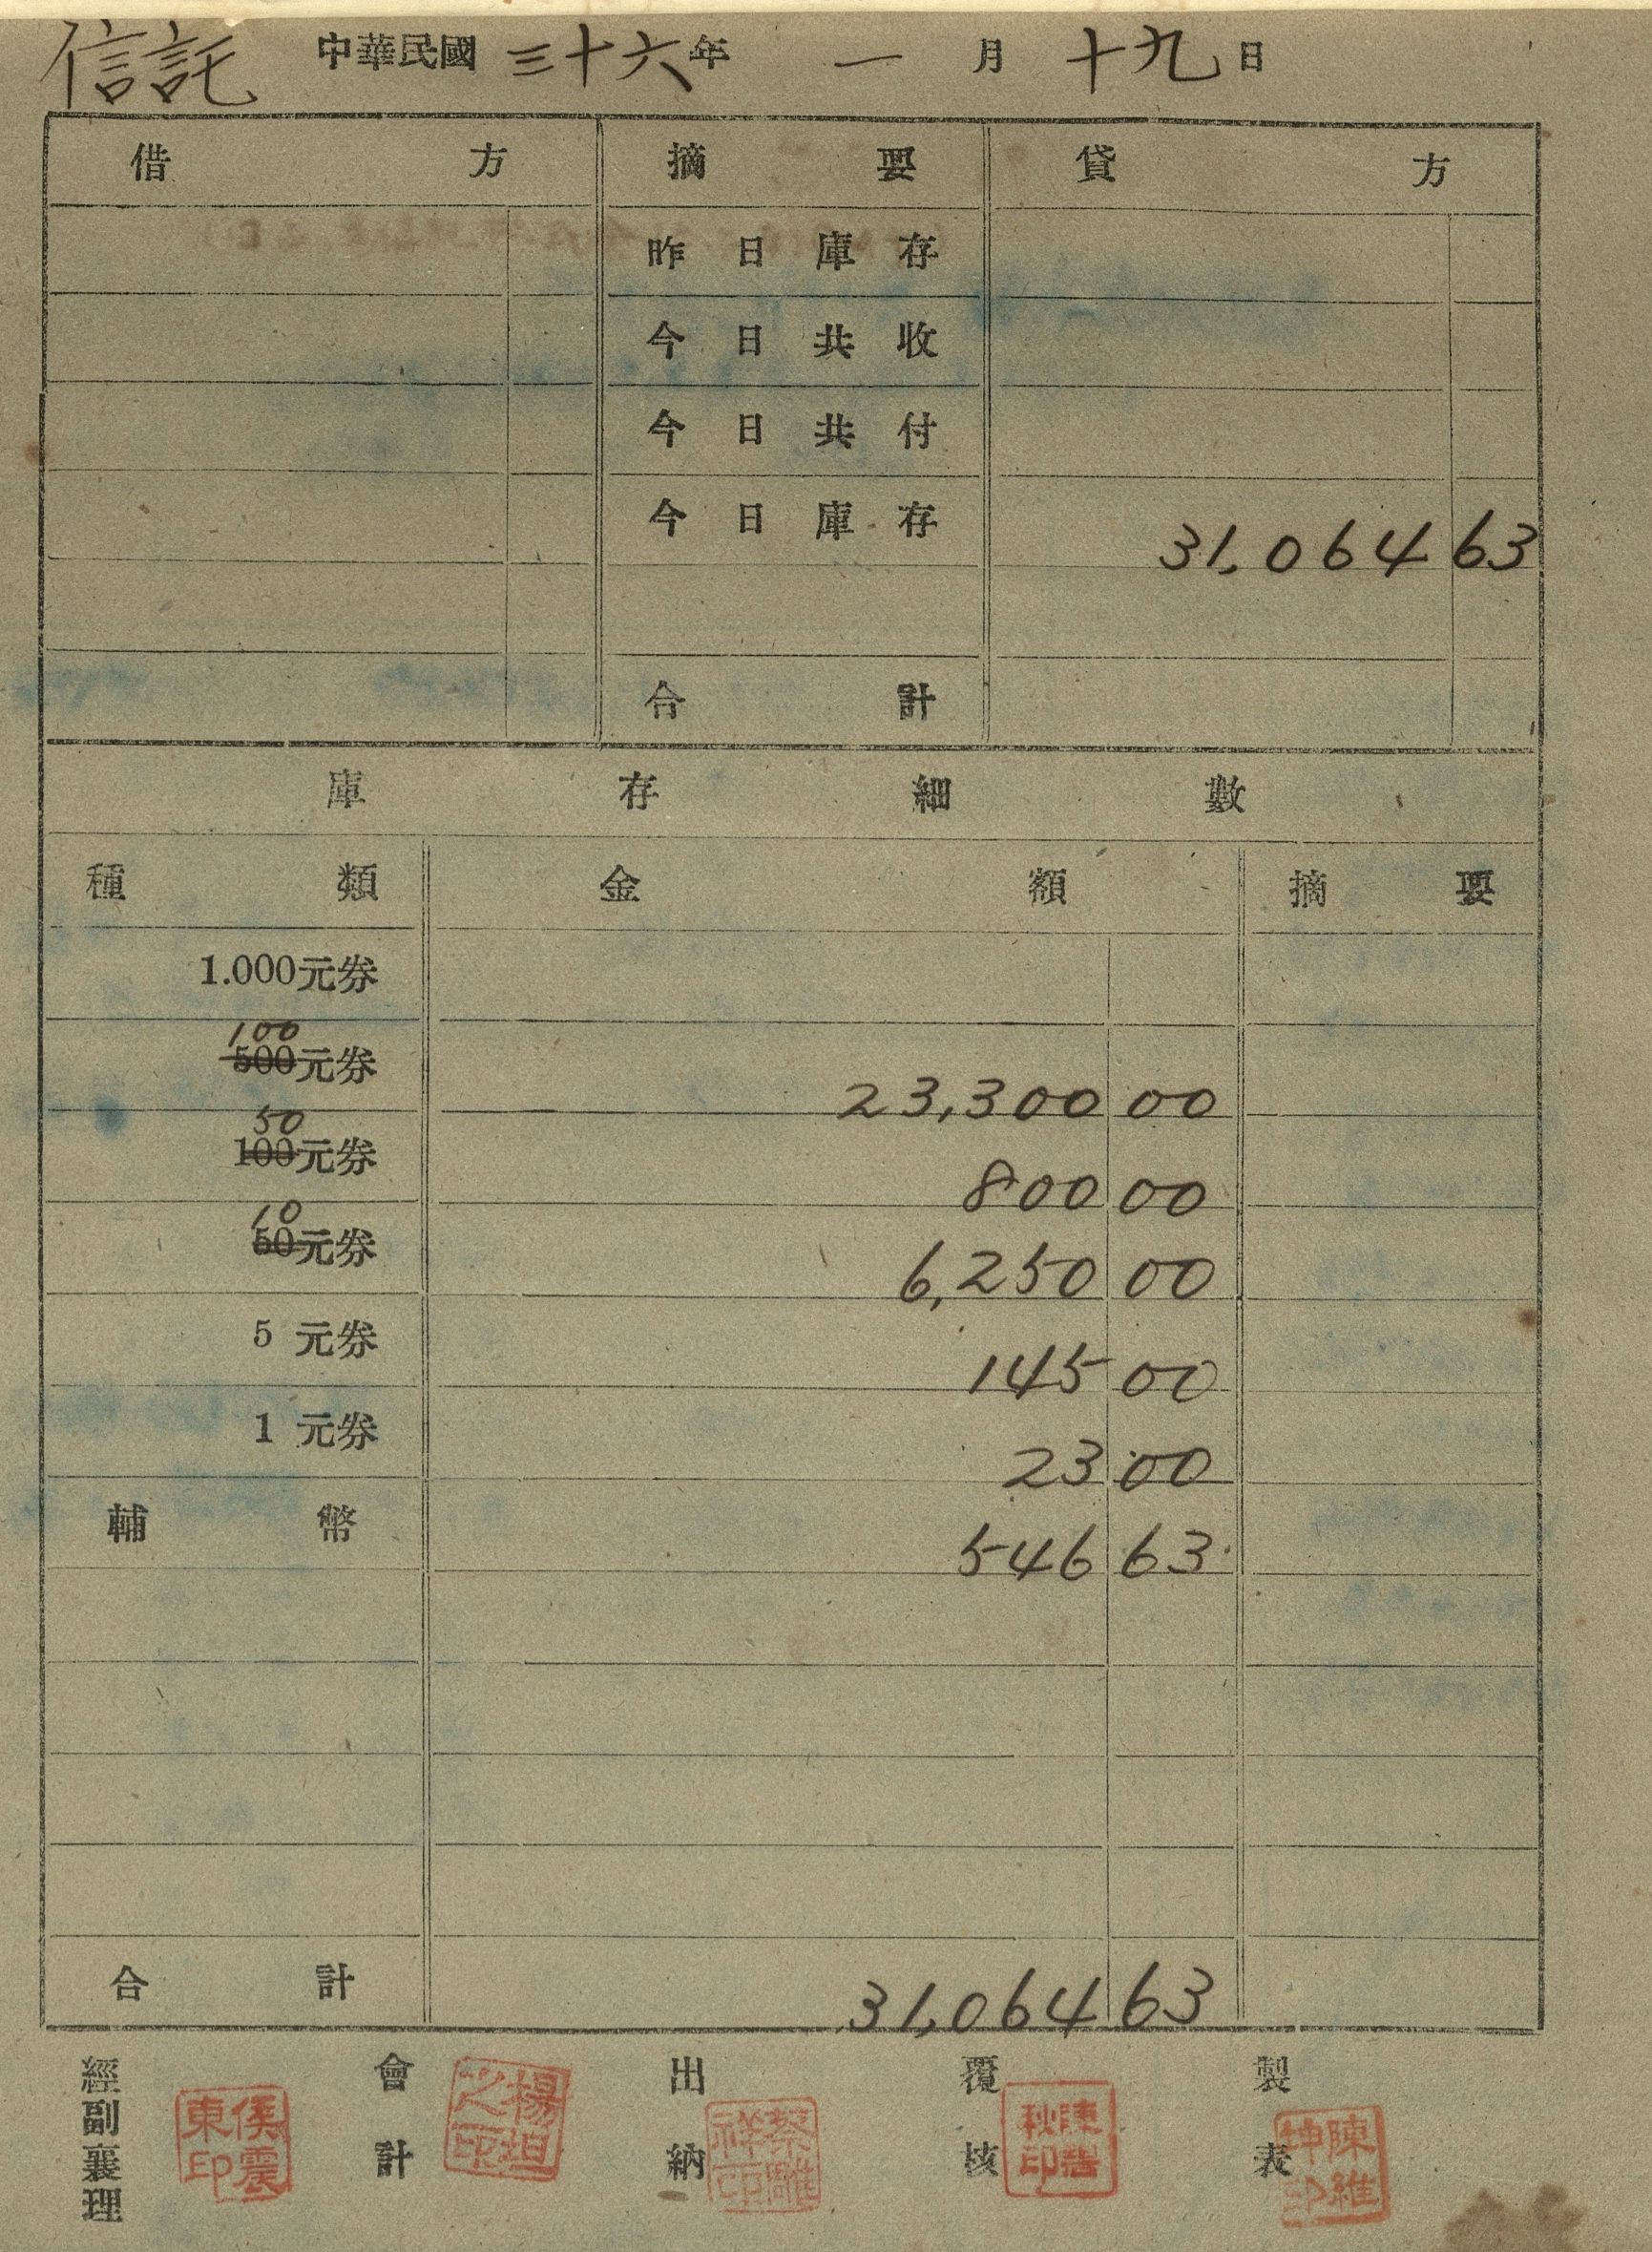 信託 中華民國 三十六年 一月 十九日
借方 摘要 貸方
昨日庫存
今日共收
今日共付
今日庫存 31,064 63
合計
庫存細數
種類 金額 摘要
1.000元券
100
500元券 23,300 00
50
100元券 800 00
10
50元券 6,250 00
5 元券 145 00
1 元券 23 00
輔幣 546 63
合計 31,064 63
經副襄理 侯震東印 會計 楊坦之印 出納 祥印 覆核 陳 秋印 製表 陳維坤印